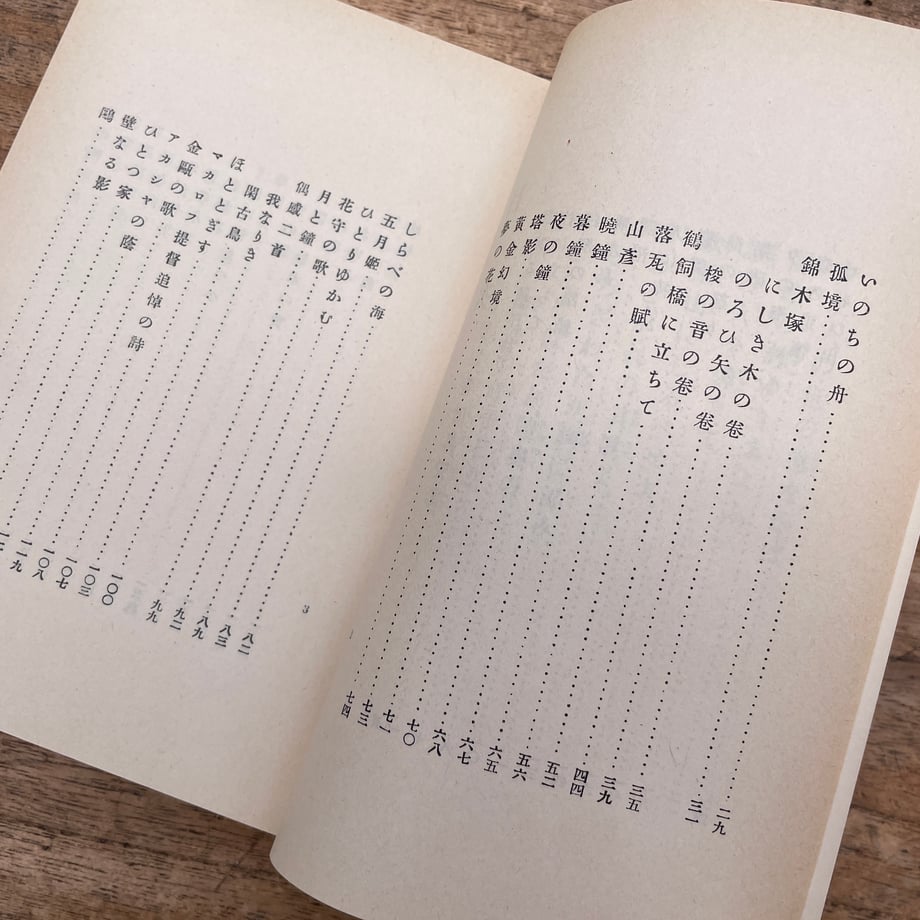 いのちの舟……二九
孤境……三一
錦木塚
にしき木の卷……三五
のろひ矢の卷……三九
梭の音の卷……四四
鶴飼橋に立ちて……五二
落瓦の賦……五六
山彥……六五
曉鐘……六七
暮鐘……六八
夜の鐘……七〇
塔影……七一
黃金幻境……七三
夢の花……七四
3
しらべの海……八二
五月姬……八三
ひとりゆかむ……八九
花守の歌……九二
月と鐘……九九
偶感二首
我なりき……一〇〇
閑古鳥……一〇三
ほととぎす……一〇七
マカロフ提督追悼の詩……一〇八
金甌の歌……一一九
アカシヤの蔭……
ひとつ家……
壁なる影……
鷗……